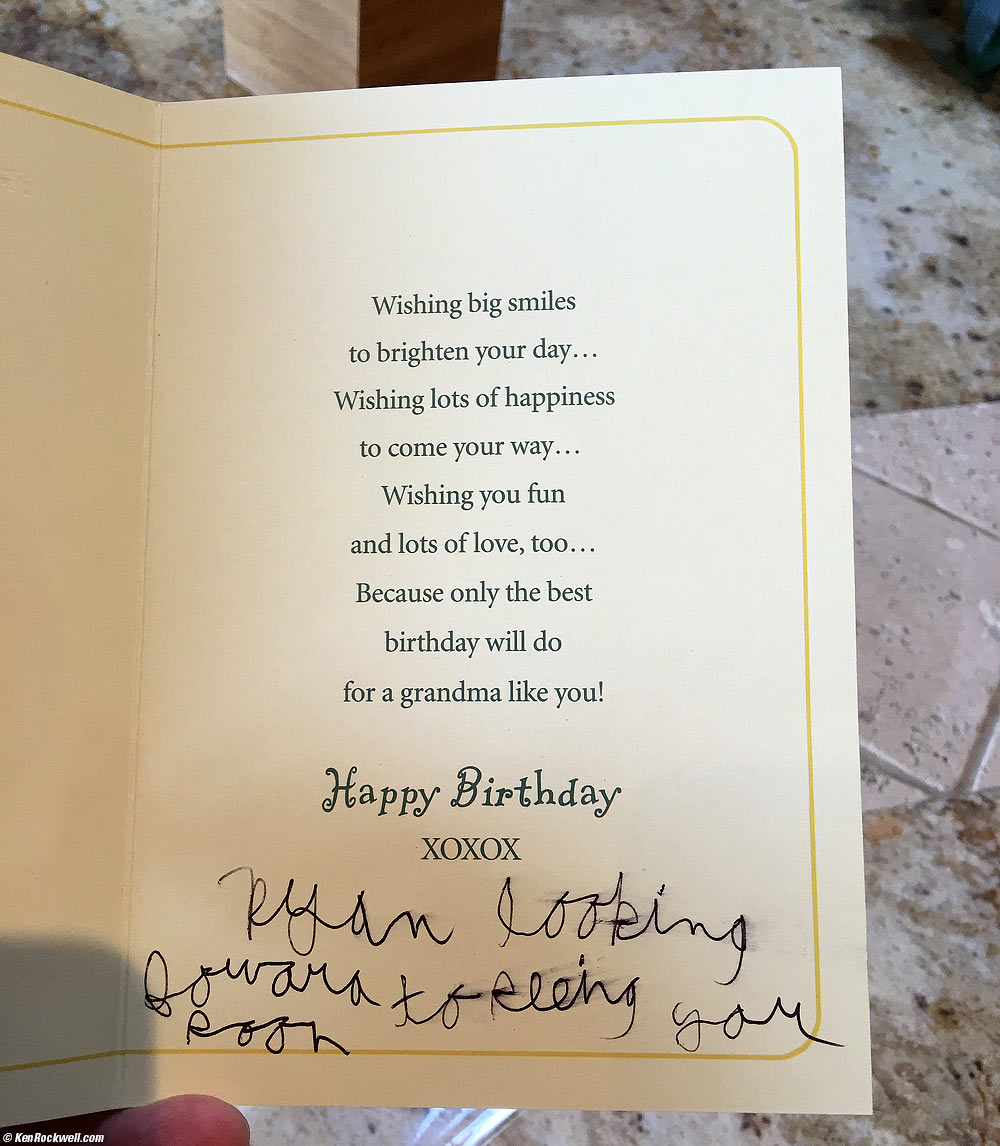 Wishing big smiles
to brighten your day...
Wishing lots of happiness
to come your way...
Wishing you fun
and lots of love, too...
Because only the best
birthday will do
for a grandma like you!
Happy Birthday
XOXOX
Ryan looking
foward to seeing you
soon
© KenRockwell.com